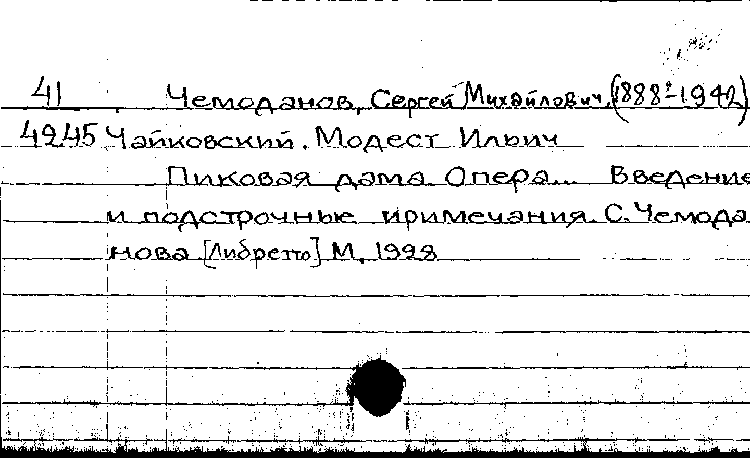 41 Чемоданов, Сергей Михайлович, (1888-1942)
4945 Чайковский, Модест Ильич
Пиковая дама. Опера... Введение
и подстрочные примечания С. Чемода
нова [Либретто] М, 1928